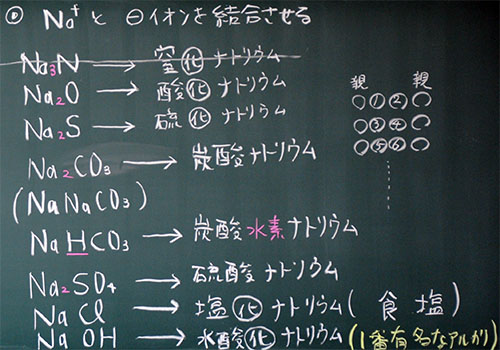 ① Na⁺ と ⊖イオンを結合させる
Na₃N → 窒化ナトリウム
Na₂O → 酸化ナトリウム
Na₂S → 硫化ナトリウム
Na₂CO₃ → 炭酸ナトリウム
(NaNaCO₃)
NaHCO₃ → 炭酸水素ナトリウム
Na₂SO₄ → 硫酸ナトリウム
NaCl → 塩化ナトリウム(食塩)
NaOH → 水酸化ナトリウム(1番有名なアルカリ)
親 親
○①②○
○③④○
○⑤⑥○